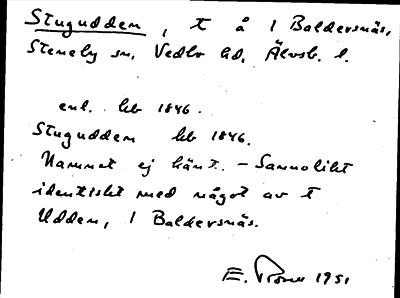 Stugudden, t å 1 Baldersnäs,
Steneby sn, Vedbo hd, Älvsb. l.
enl. hb 1846.
Stugudden hb 1846.
Namnet ej känt. - Sannolikt
identiskt med något av t
Udden, 1 Baldersnäs.
E. 1951